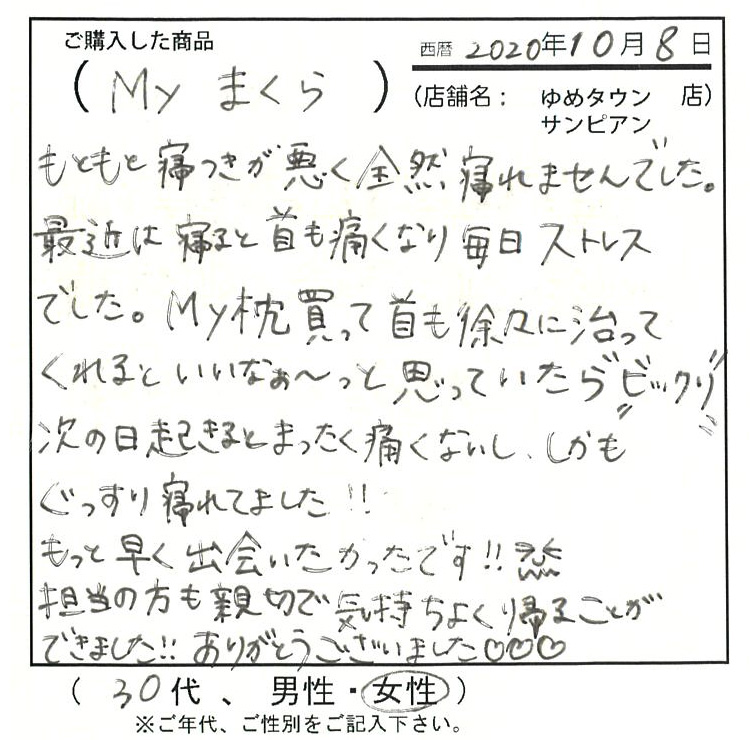 ご購入した商品
西暦 2020年10月8日
( My まくら )
(店舗名: ゆめタウン 店)
サンピアン
もともと寝つきが悪く全然寝れませんでした。
最近は寝ると首も痛くなり毎日ストレス
でした。My枕買って首も徐々に治って
くれるといいなぁ〜っと思っていたら"ビックリ"
次の日起きるとまったく痛くないし、しかも
ぐっすり寝れてました!!
もっと早く出会いたかったです!!
担当の方も親切で気持ちよくり帰ることが
できました!!ありがとうございました♡♡♡
( 30代、 男性・女性 )
※ご年代、ご性別をご記入下さい。